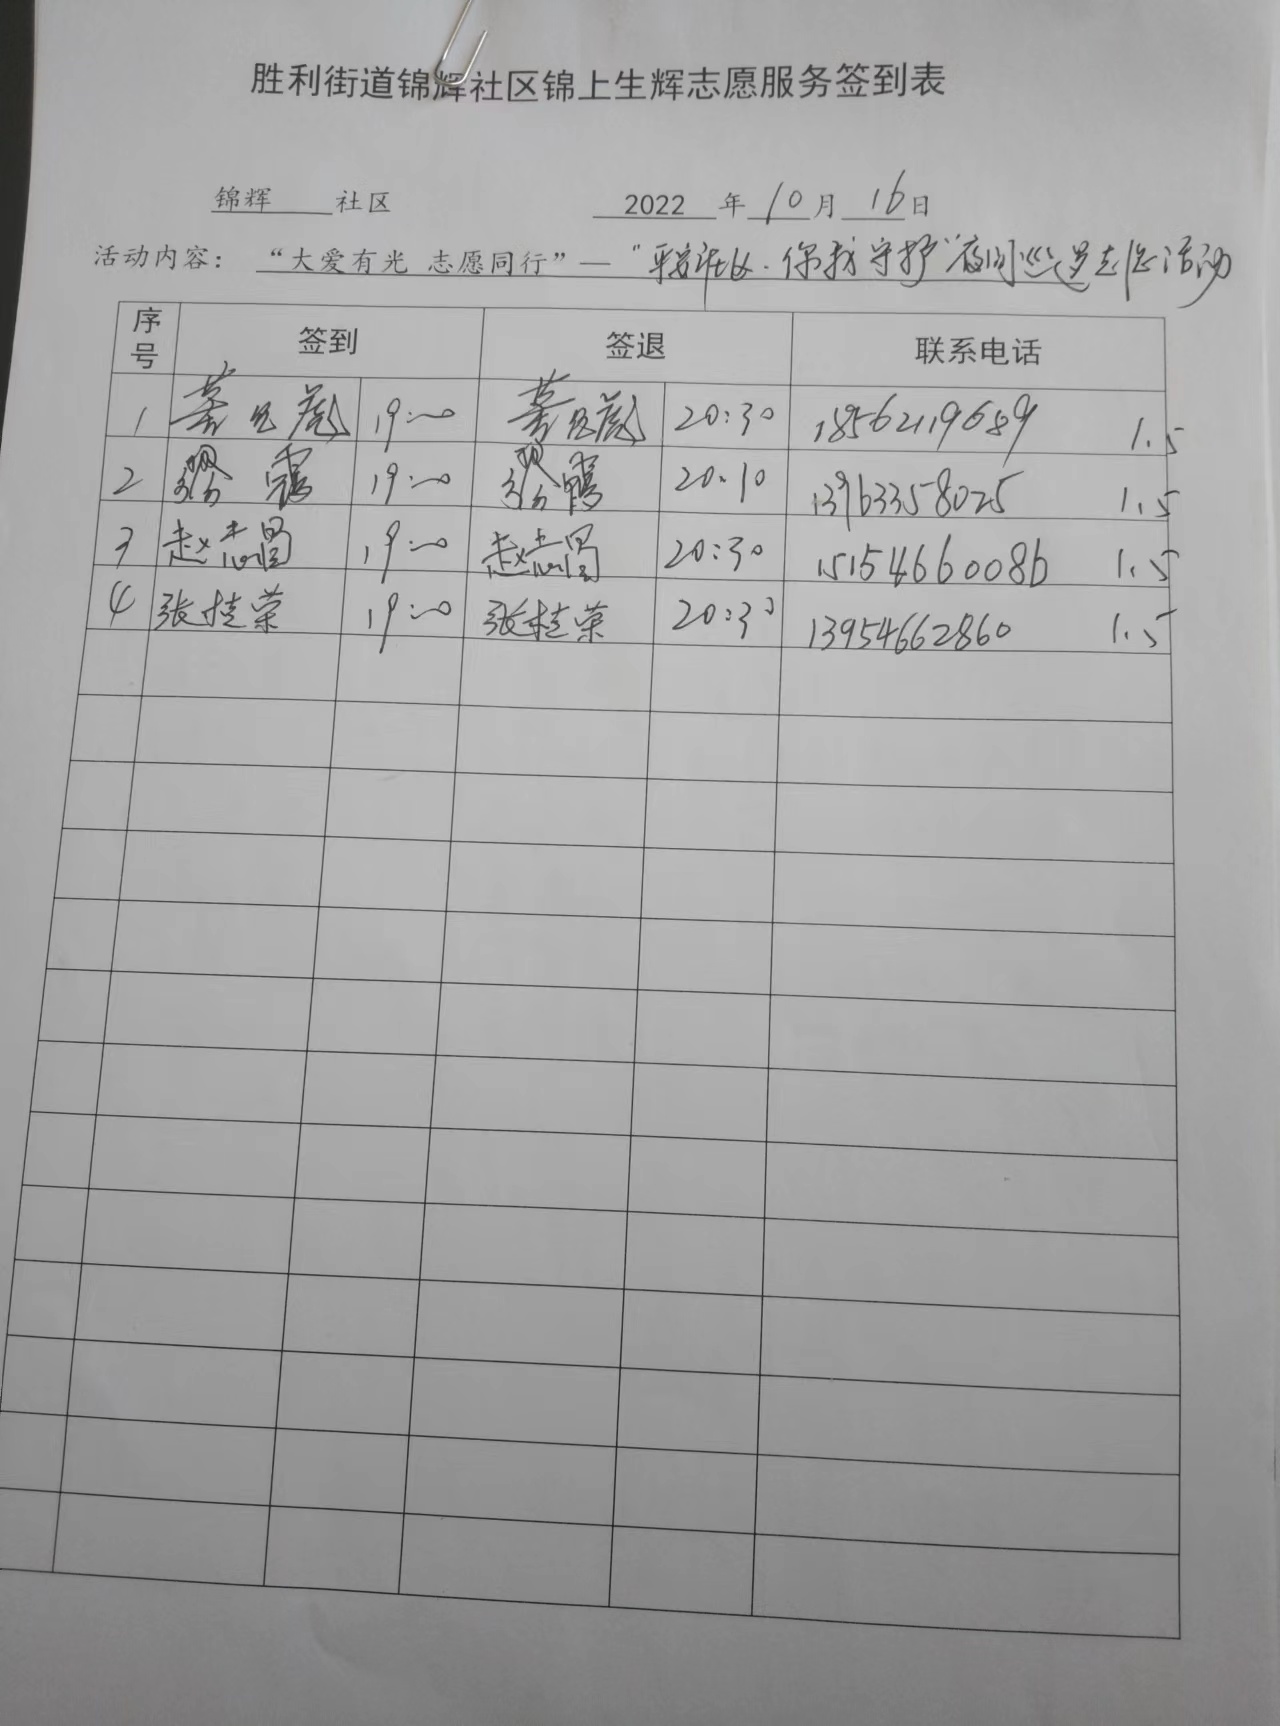 胜利街道锦辉社区锦上生辉志愿服务签到表
锦辉 社区 2022 年 10 月 16 日
活动内容： “大爱有光 志愿同行”—“平安社区·你我守护”夜间巡逻志愿活动
序号 签到 签退 联系电话
1 19:00 20:30 18562119689 1.5
2 19:00 20:10 13963358025 1.5
3 赵志昌 19:00 赵志昌 20:30 15154660086 1.5
4 张桂荣 19:00 张桂荣 20:30 13954662860 1.5